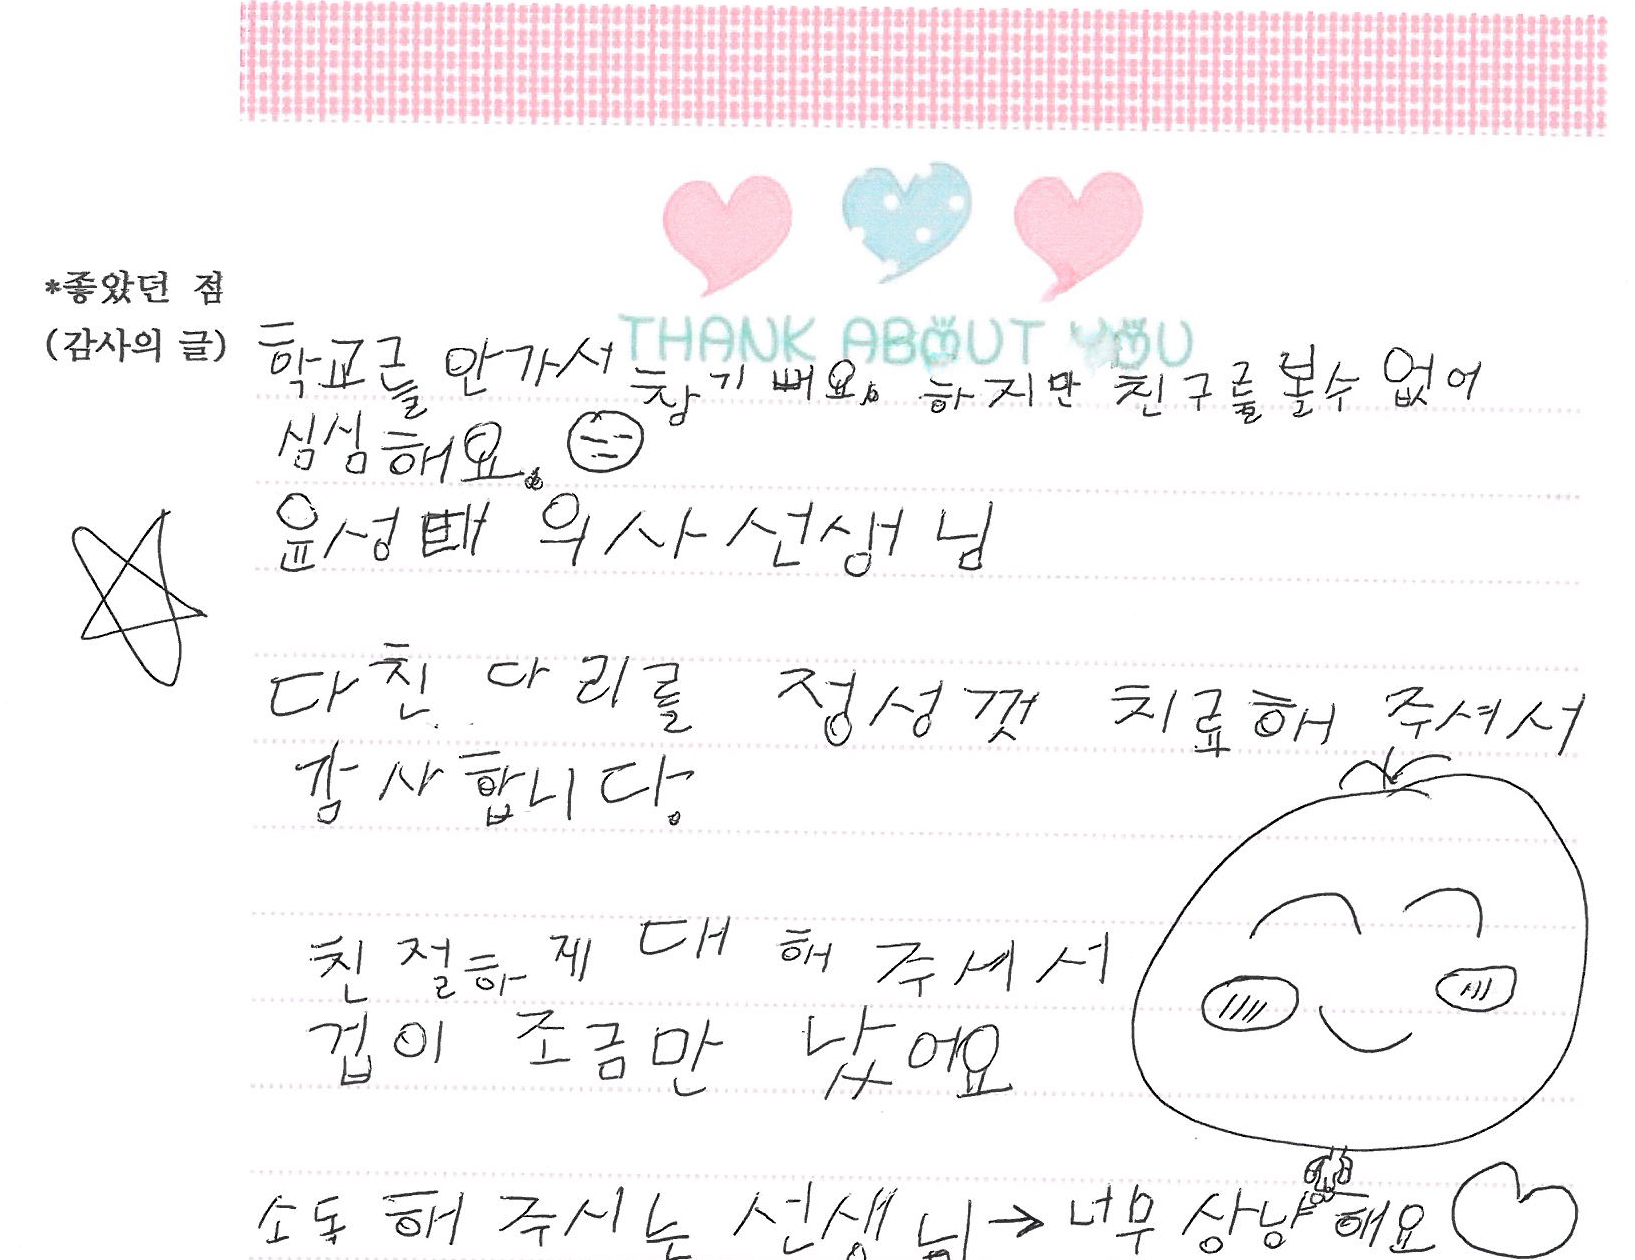 THANK ABOUT YOU
*좋았던 점
(감사의 글)
학교를 안가서 참 기뻐요. 하지만 친구를 볼수 없어
심심해요.
윤성빼 의사선생님
다친 다리를 정성껏 치료해 주셔서
감사합니다.
친절하게 대해 주셔서
겁이 조금만 났어요
소독해 주시는 선생님→너무 상냥해요